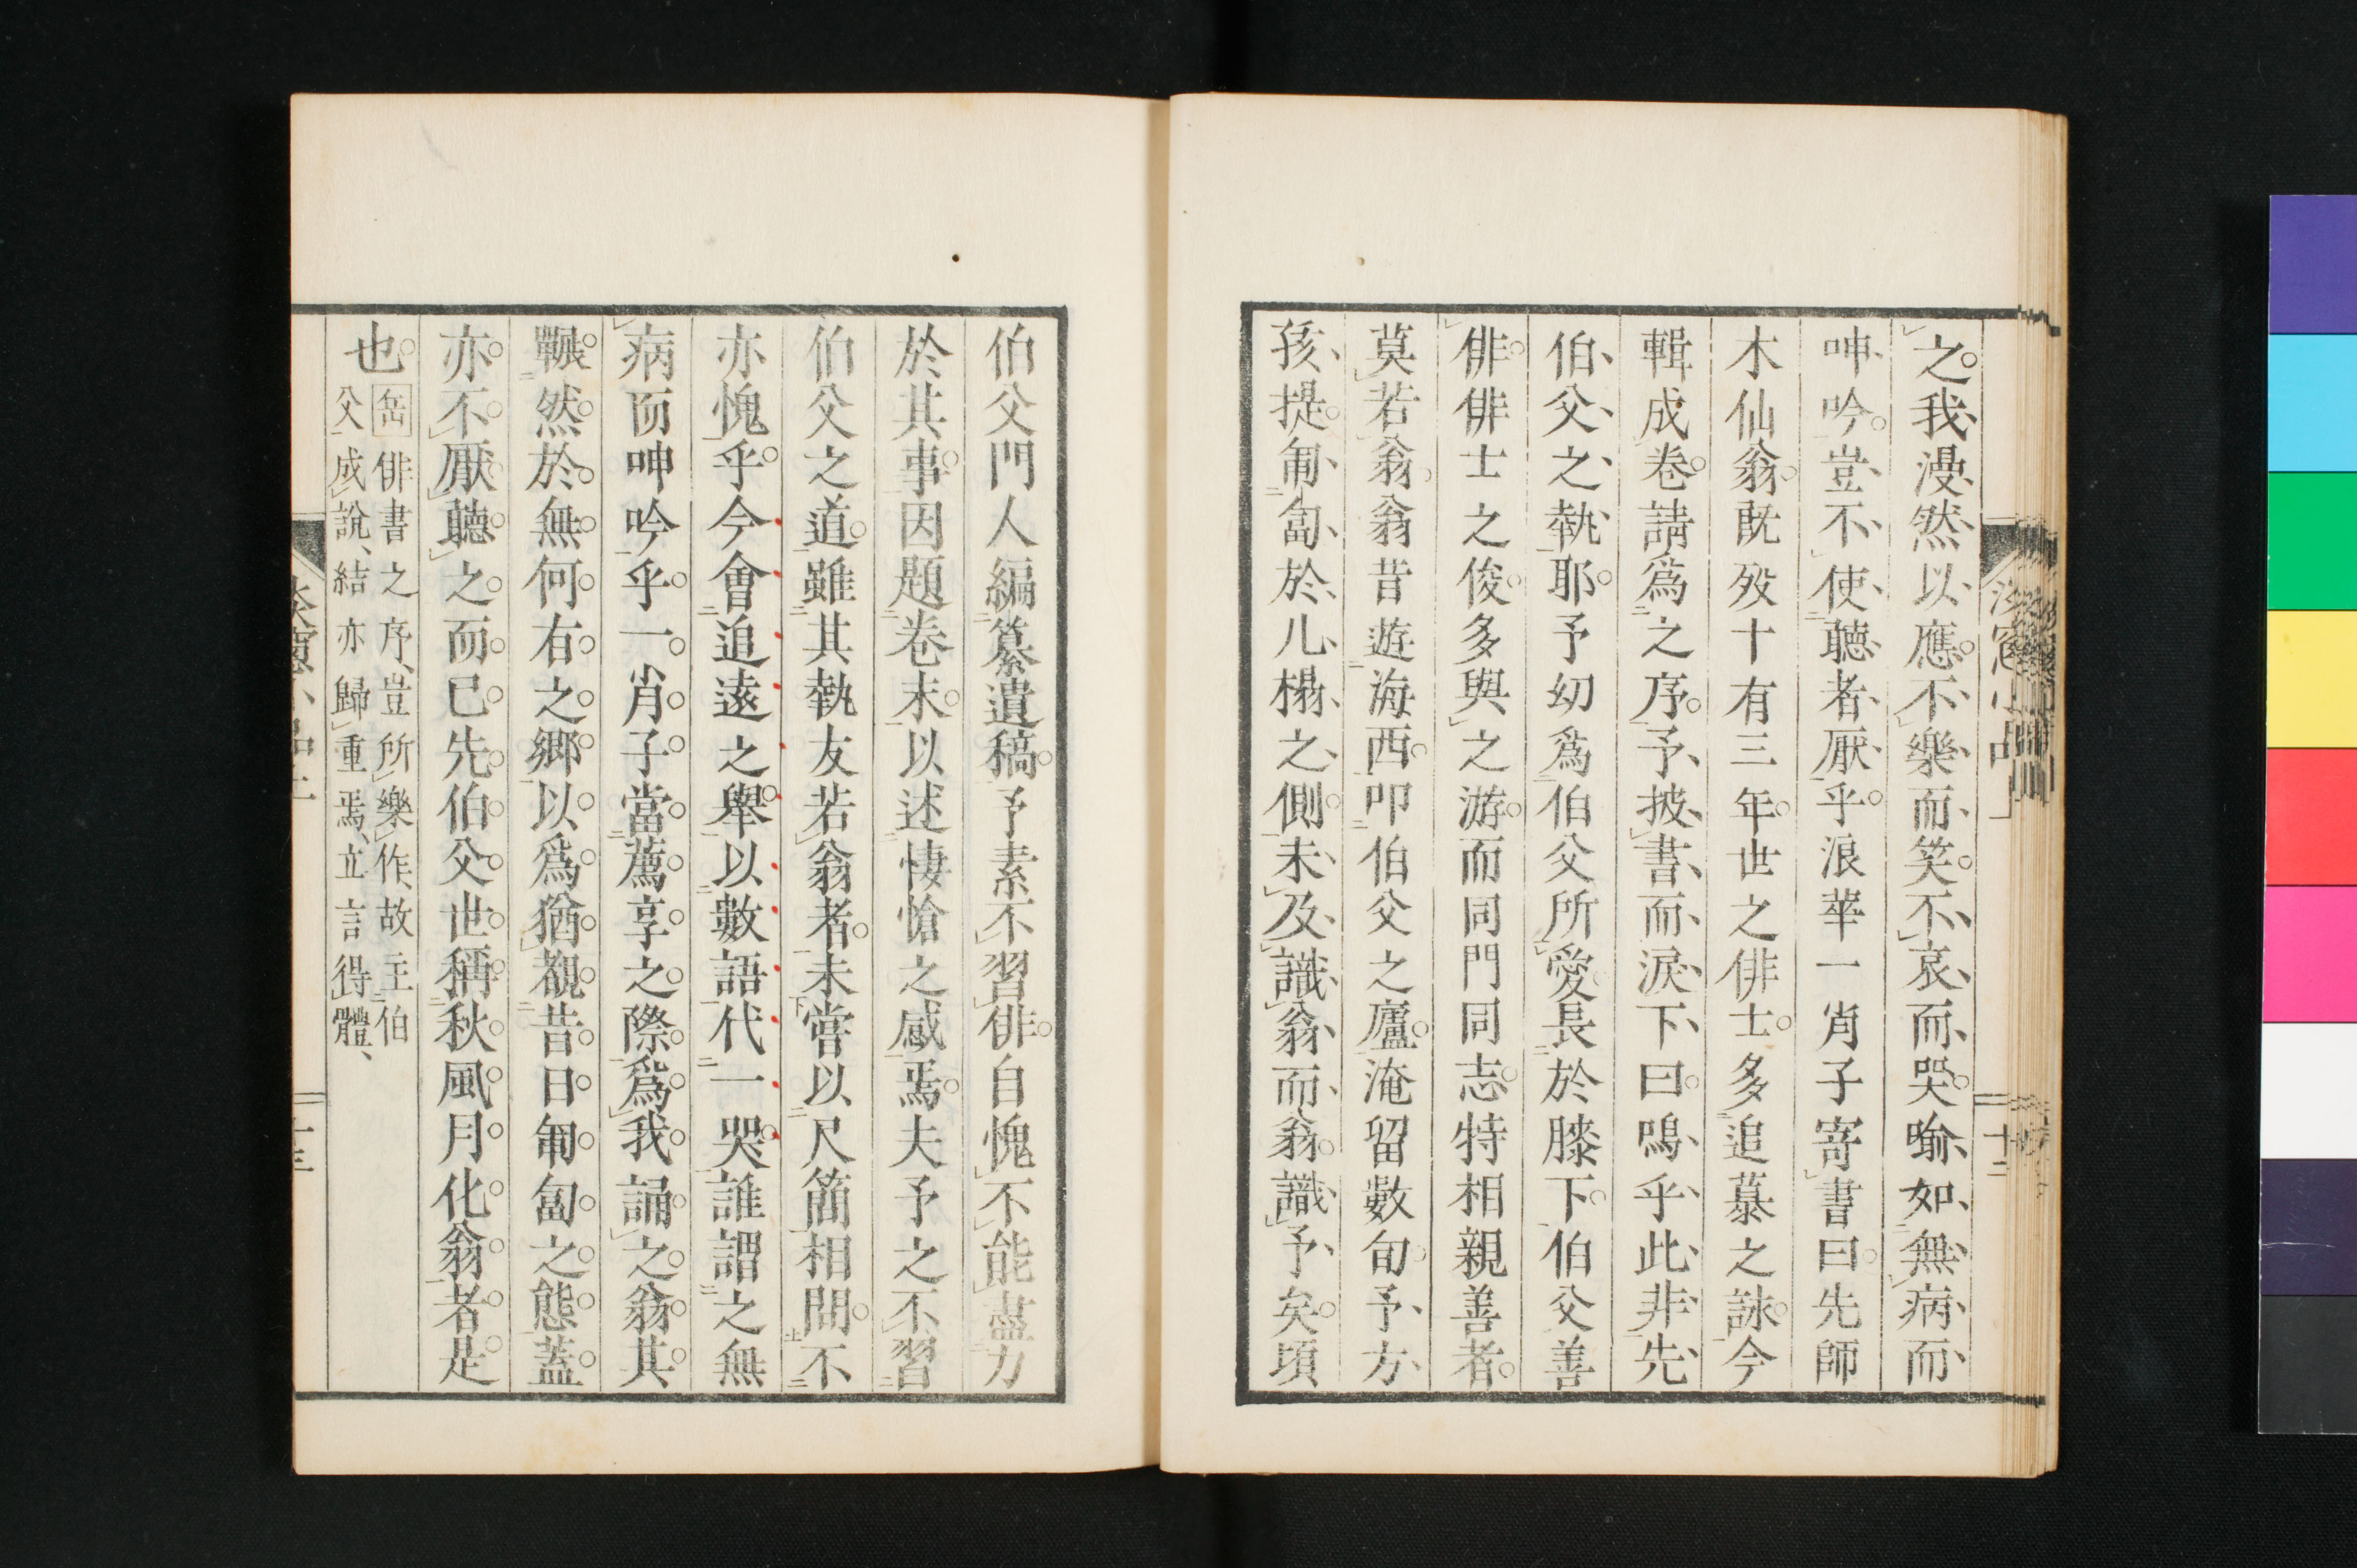 之我漫然以應不樂而笑不哀而哭喻如無病而
呻吟豈不使聽者厭乎浪華一肖子寄書曰先師
木仙翁既歿十有三年世之俳士多追慕之詠今
輯成卷請爲之序予披書而淚下曰嗚乎此非先
伯父之執耶予幼爲伯父所愛長於膝下伯父善
俳俳士之俊多與之游而同門同志特相親善者
莫若翁翁昔遊海西叩伯父之廬淹留數旬予方
孩提匍匐於几榻之側未及識翁而翁識予矣頃
伯父門人編纂遺稿予素不習俳自愧不能盡力
於其事因題卷末以述悽愴之感焉夫予之不習
伯父之道雖其執友若翁者未嘗以尺簡相問不
亦愧乎今會追遠之舉以數語代一哭誰謂之無
病而呻吟乎一肖子當薦享之際爲我誦之翁其
囅然於無何有之鄉以爲猶覩昔日匍匐之態蓋
亦不厭聽之而已先伯父世稱秋風月化翁者是
也
岳俳書之序、豈所樂作、故主伯
父成說、結亦歸重焉、立言得體、
十二